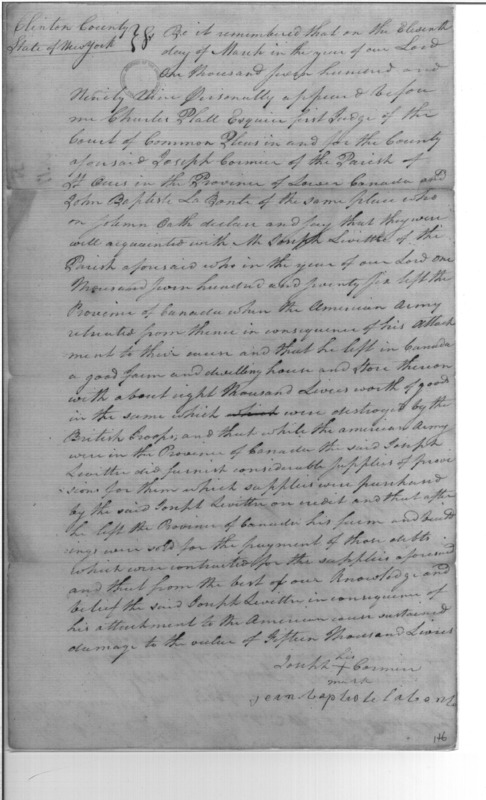 Clinton County
State of New York } SS.
Be it remembered that on the Eleventh
day of March in the year of our Lord
One thousand seven hundred and
Ninety Nine Personally appeared before
me Charles Platt Esquire first Judge of the
Court of Common Pleas in and for the County
aforesaid Joseph Cormier of the Parish of
St in the Province of Lower Canada and
John Baptiste La Bonte of the same place who
on solemn Oath declare and say that they were
well acquainted with Joseph Livitte of the
Parish aforesaid who in the year of our Lord One
Thousand seven hundred and seventy six left the
Province of Canada when the American Army
retreated from thence in consequence of his Attach
ment to their cause and that he left in Canada
a good farm and dwelling house and store thereon
with about eight thousand Livers worth of goods
in the same which which were destroy'd by the
British Troops, and that while the american Army
were in the Province of Canada the said Joseph
Livitte did furnish considerable supplies of provi
sions for them which supplies were purchased
by the said Joseph Livitte on credit and that after
he left the Province of Canada his farm and build
ings were sold for the payment of those debts
which were contracted for the supplies aforesaid
and that from the best of our Knowledge and
belief the said Joseph Livitte in consequence of
his attachment to the American cause sustained
damage to the value of fifteen Thousand Livres
Joseph his X mark Cormier
jean baptiste labonte
146